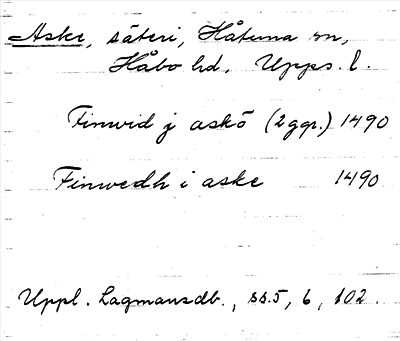 Aske, säteri, Håtuna sn,
Håbo hd, Upps. l.
Finwid j askö (2 ggr.) 1490
Finwedh i aske 1490
Uppl. Lagmansdb., ss. 5, 6, 102.